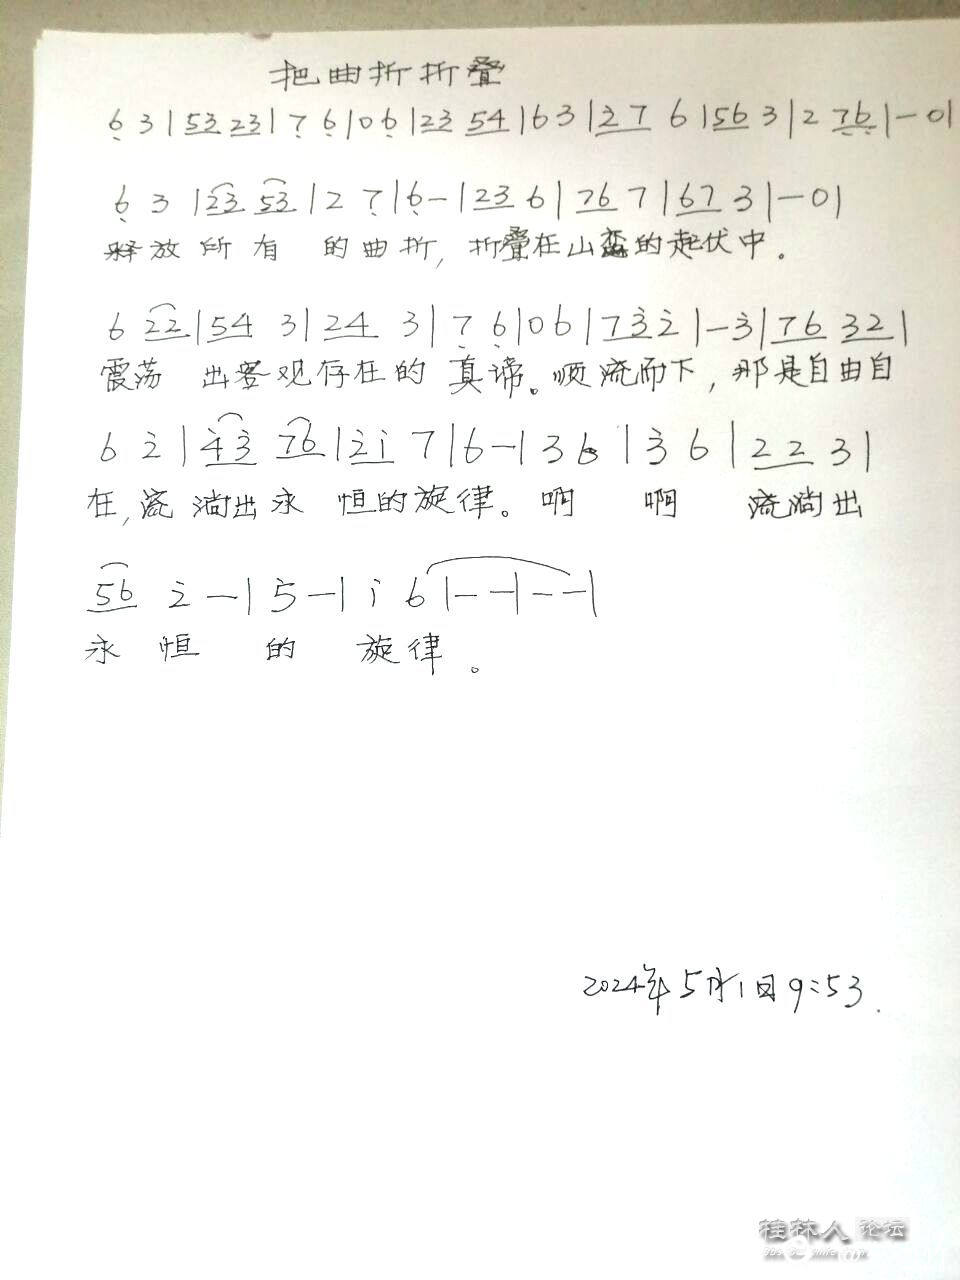 把曲折折叠
6̣ 3 | 53 23 | 7̣ 6̣ | 0 6̣ | 23 54 | 6 3 | 27 6 | 56 3 | 2 7̣6̣ | - 0 |
6̣ 3 | 23 53 | 2 7̣ | 6̣ - | 23 6 | 76 7 | 67 3 | - 0 |
释放所有 的曲折, 折叠在山峦的起伏中。
6 22 | 54 3 | 24 3 | 7̣ 6̣ | 0 6 | 7 3̇ 2̇ | - 3̇ | 76 32 |
震荡 出客观存在的 真谛。顺流而下, 那是自由自
6 2̇ | 4̇3̇ 76 | 2̇1̇ 7 | 6 - | 3 6 | 3̇ 6 | 22 3 |
在, 流淌出永 恒的旋律。啊 啊 流淌出
56 2̇ - | 5̇ - | 1̇ 6 | - - | - - |
永 恒 的 旋律。
2024年5月1日9:53.
桂林人论坛